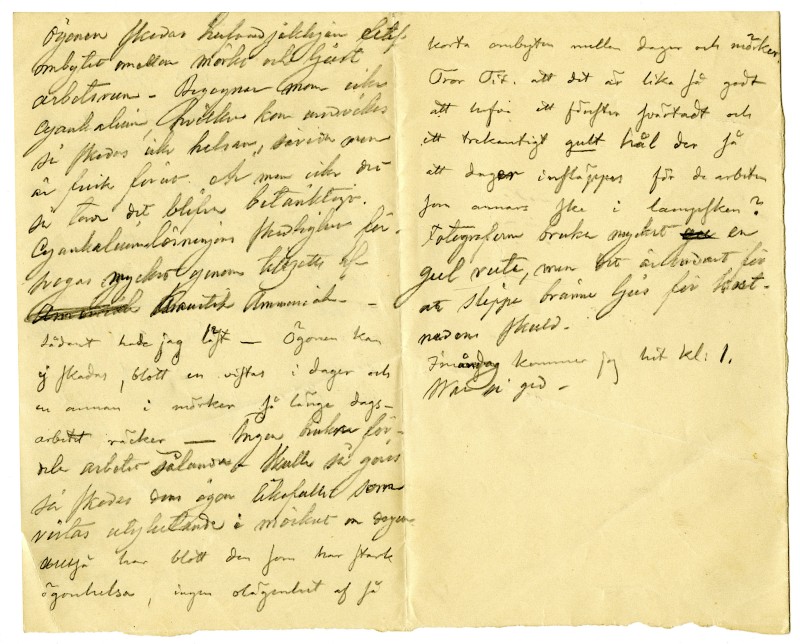 Ögonen skadas
ombytet emellan mörkt och ljust
arbetsrum. Begagnar man icke
Cyankalium, hvilken kan undvikas
så skadas icke helsan, såvida man
är frisk förut. Är man icke det
så torde det blifva betänkligt.
Cyankaliumlösningens skadlighet för-
tages mycket genom tillsats af
Kaustik Ammoniak. -
Sådant hade jag läst — Ögonen kan
ej skadas, blott en vistas i dager och
en annan i mörker så länge dags-
arbetet räcker — Ingen brukar för-
dela arbetet sålunda. Skulle så göras
så skadas dens ögon likafullt som
vistas uteslutande i mörkret om dagen
har blott den som har stark
ögonhelsa, ingen olägenhet af så
korta ombyten mellan dager och mörker.
Tror Tit. att det är lika så godt
att hafva ett fönster svärtadt och
ett trekantigt gult hål der så
att dager insläppes för de arbeten
som annars ske i lampsken?
Fotograferna bruka mycket en
gul ruta, men det är endast för
att slippa bränna ljus för kost-
nadens skuld.
I måndag kommer jag hit kl: 1.
War så god -